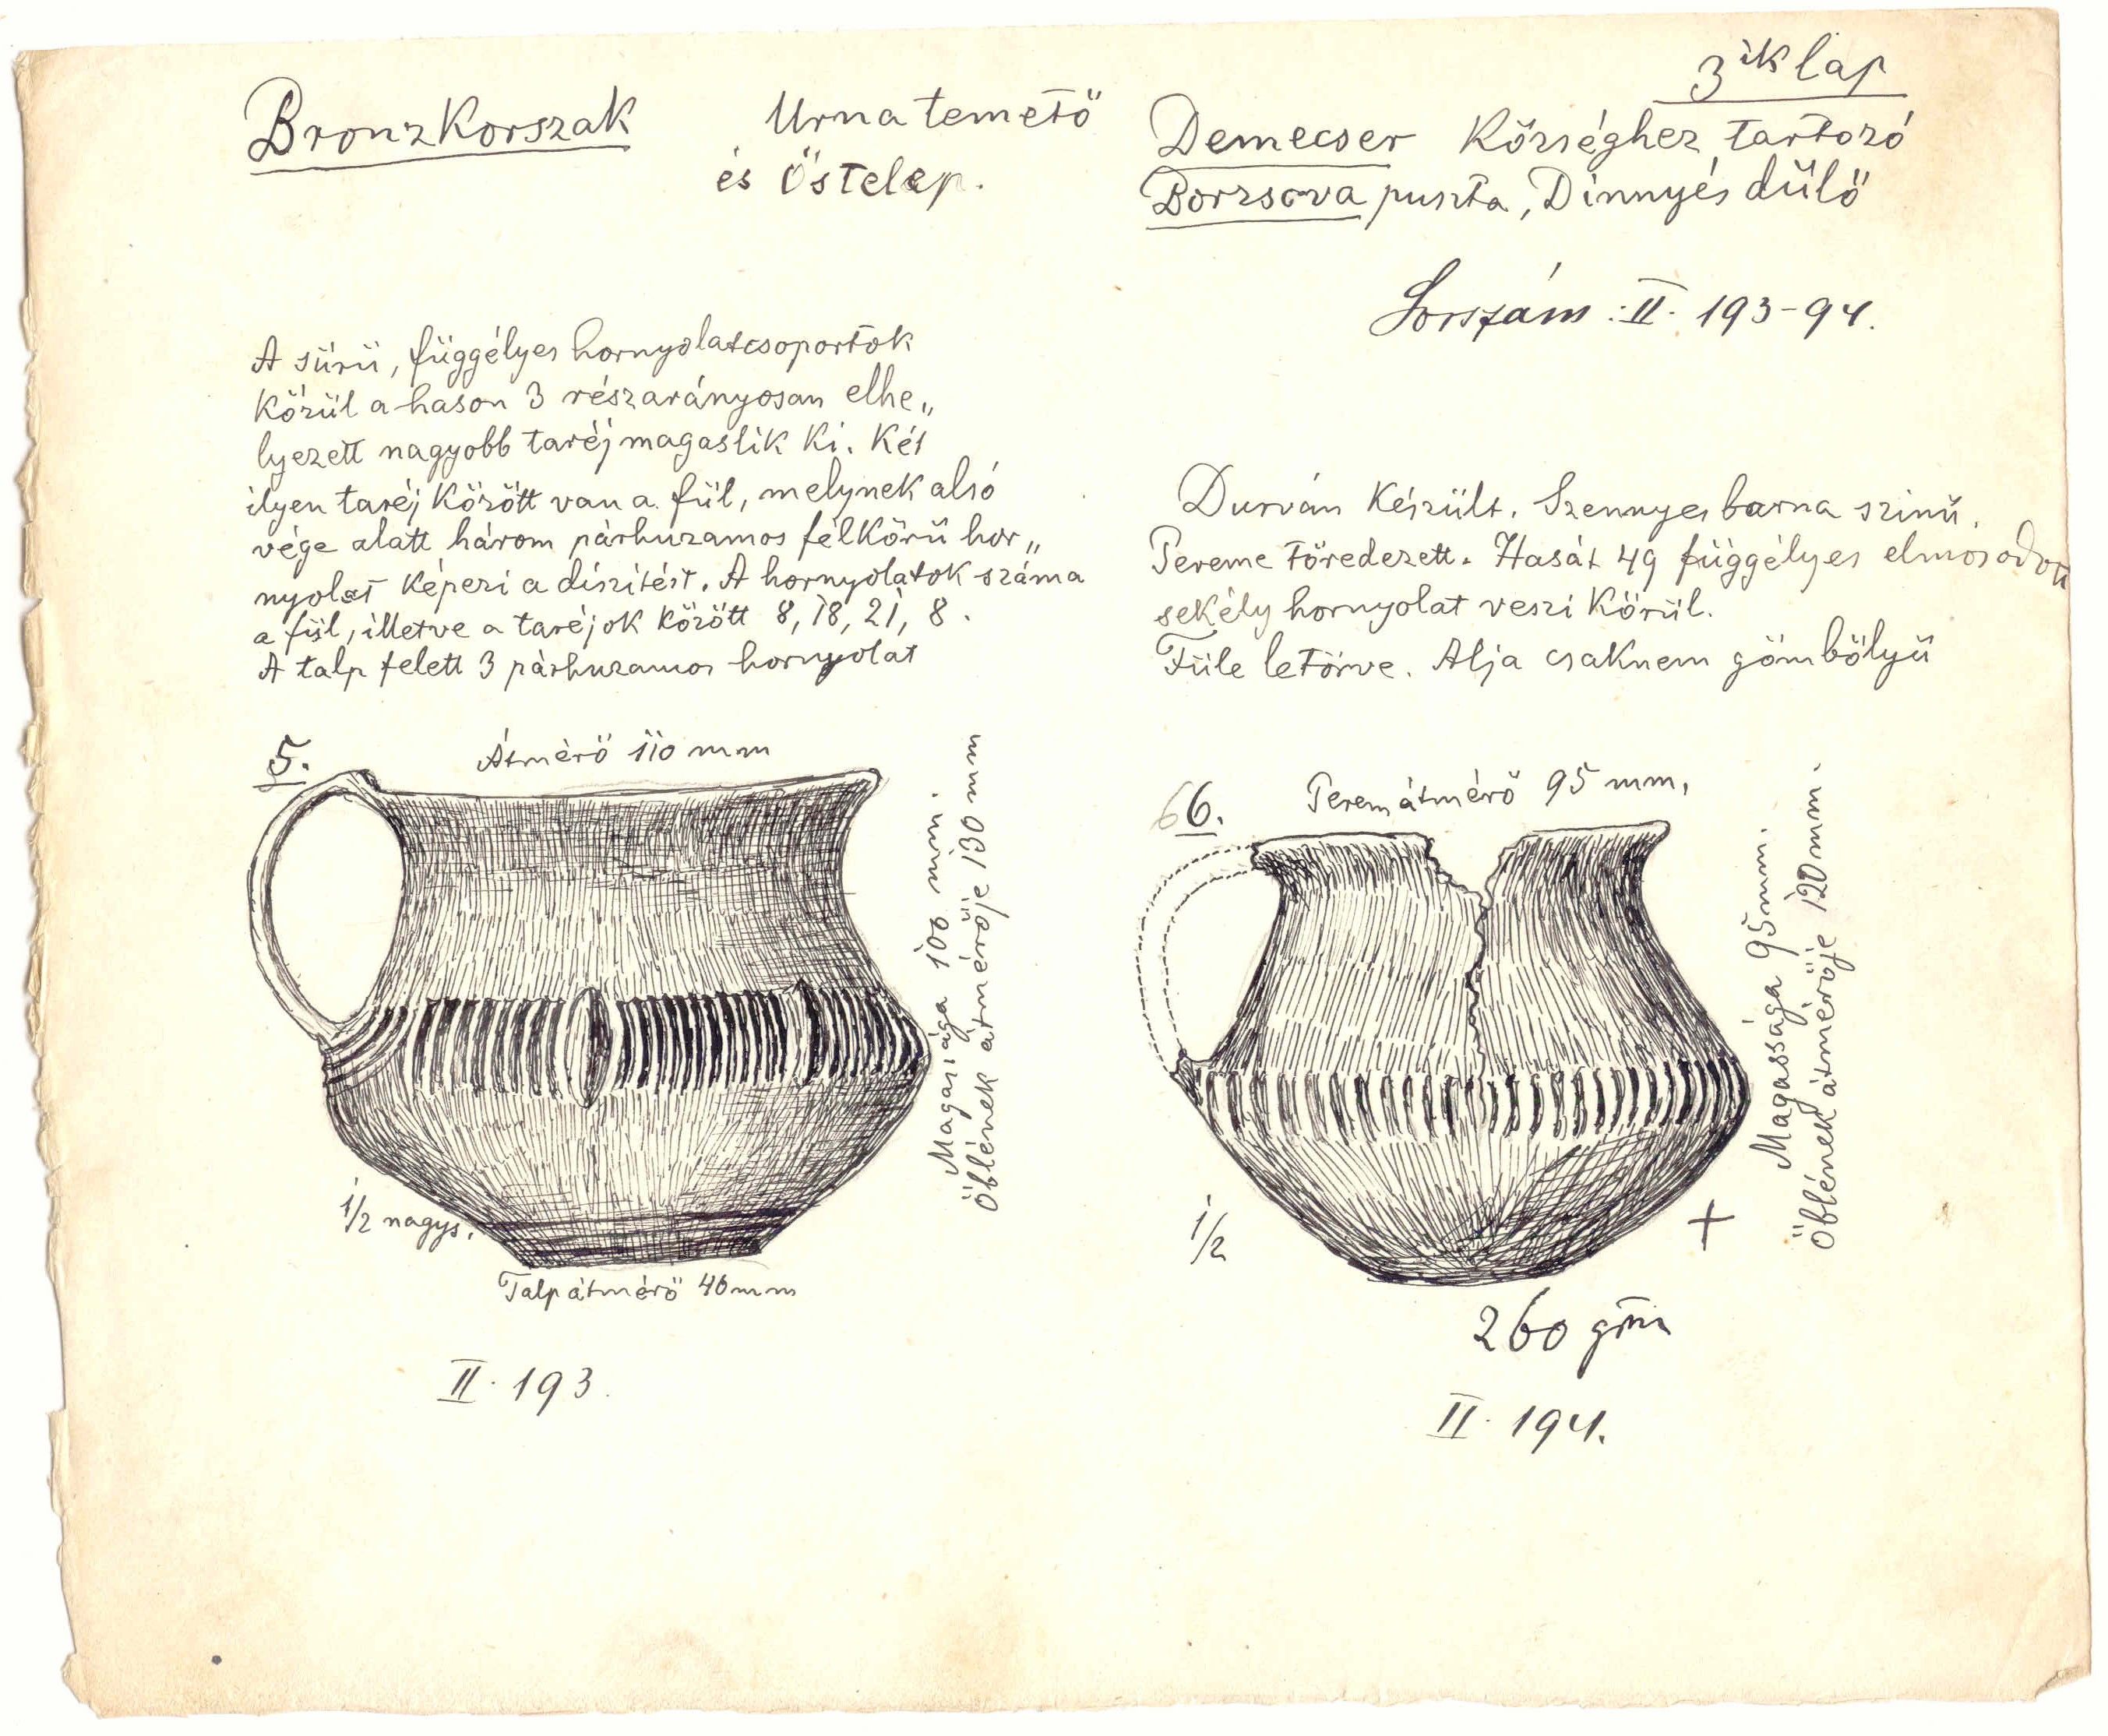 3ik lap
Bronzkorszak
Urnatemető
és Őstelep.
Demecser Községhez tartozó
Borzsova puszta, Dinnyés dűlő
Sorszám: II. 193-94.
A sürü, függélyes hornyolatcsoportok
közül a hason 3 részarányosan elhe„
lyezett nagyobb taréj magaslik ki. Két
ilyen taréj között van a fül, melynek alsó
vége alatt három párhuzamos félkörű hor„
nyolat képezi a díszítést. A hornyolatok száma
a fül, illetve a taréjok között 8, 18, 21, 8.
A talp felett 3 párhuzamos hornyolat
Durván készült. Szennyes barna szinű.
Pereme töredezett. Hasát 49 függélyes elmosodott
sekély hornyolat veszi körül.
Füle letörve. Alja csaknem gömbölyű
5.
Átmérő 110 mm
Magassága 100 mm.
Öblének átmérője 130 mm
1/2 nagys.
Talpátmérő 46 mm
II. 193.
66.
Peremátmérő 95 mm.
Magassága 95 mm.
Öblének átmérője 120 mm.
1/2
+
260 gm
II. 194.